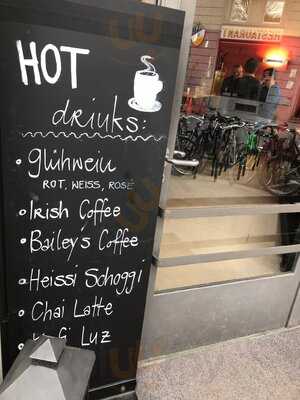 HOT
drinks:
• glühwein
ROT, WEISS, ROSÉ
• Irish Coffee
• Bailey's Coffee
• Heissi Schoggi
• Chai Latte
Luz
RESTAURANT